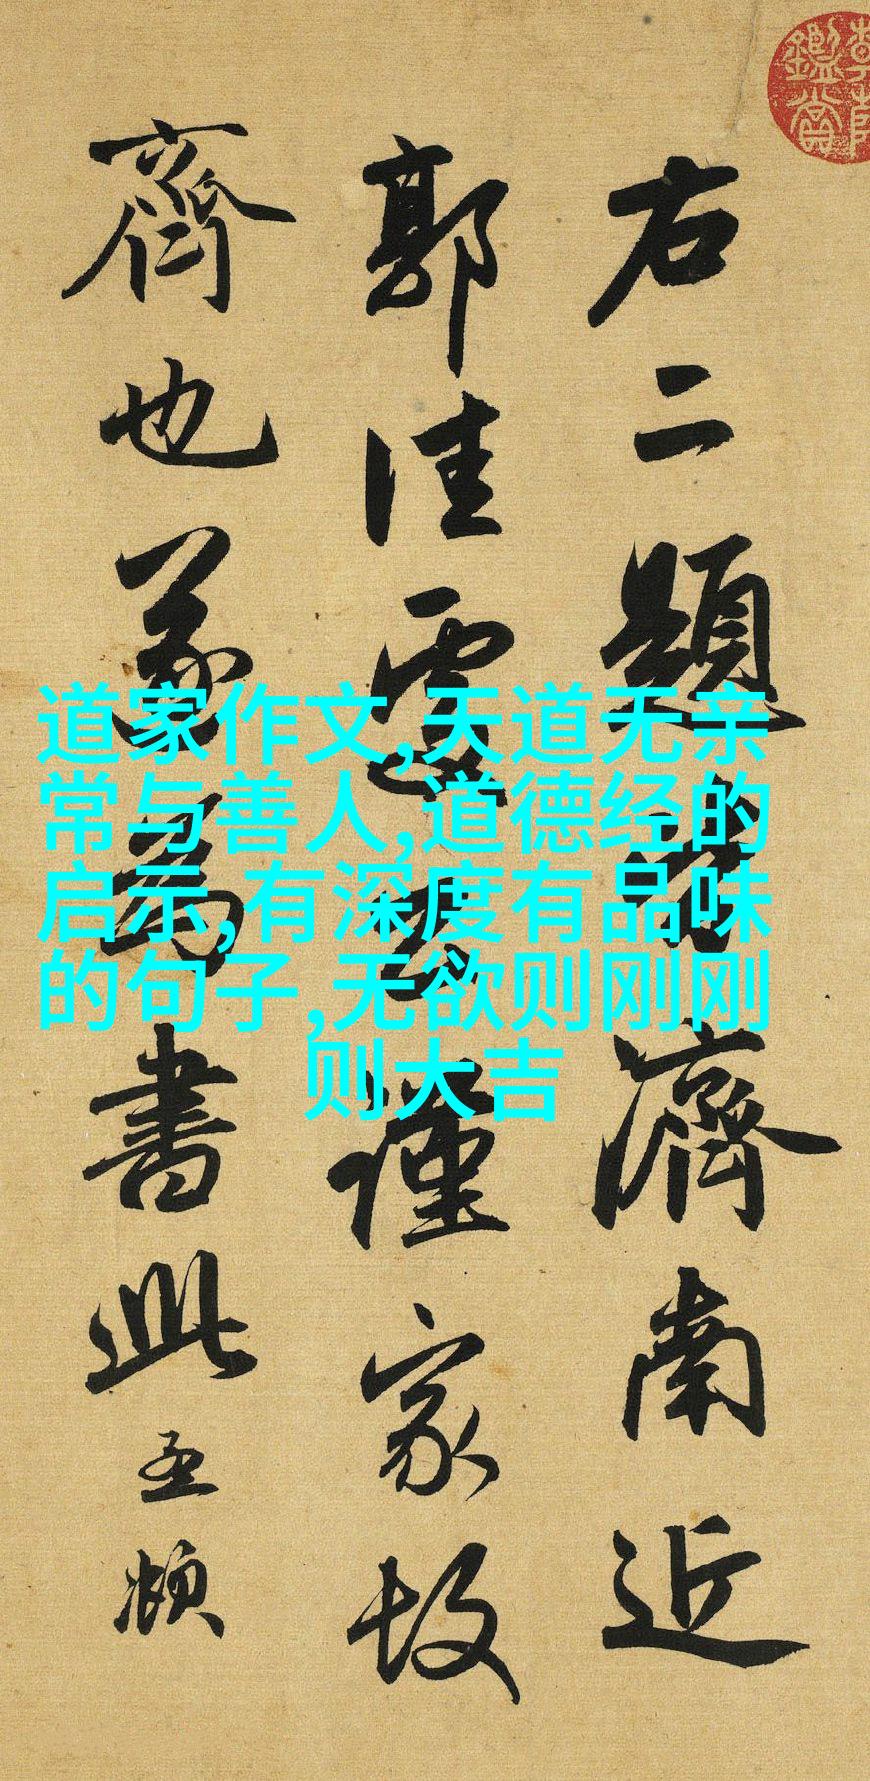 右二題皆濟南近
郭佳處公謹家故
齊也遂為書此孟頫
道家作文,天道无亲
常与善人,道德经的
启示,有深度有品味
的句子,无欲则刚刚
则大吉
鑑賞